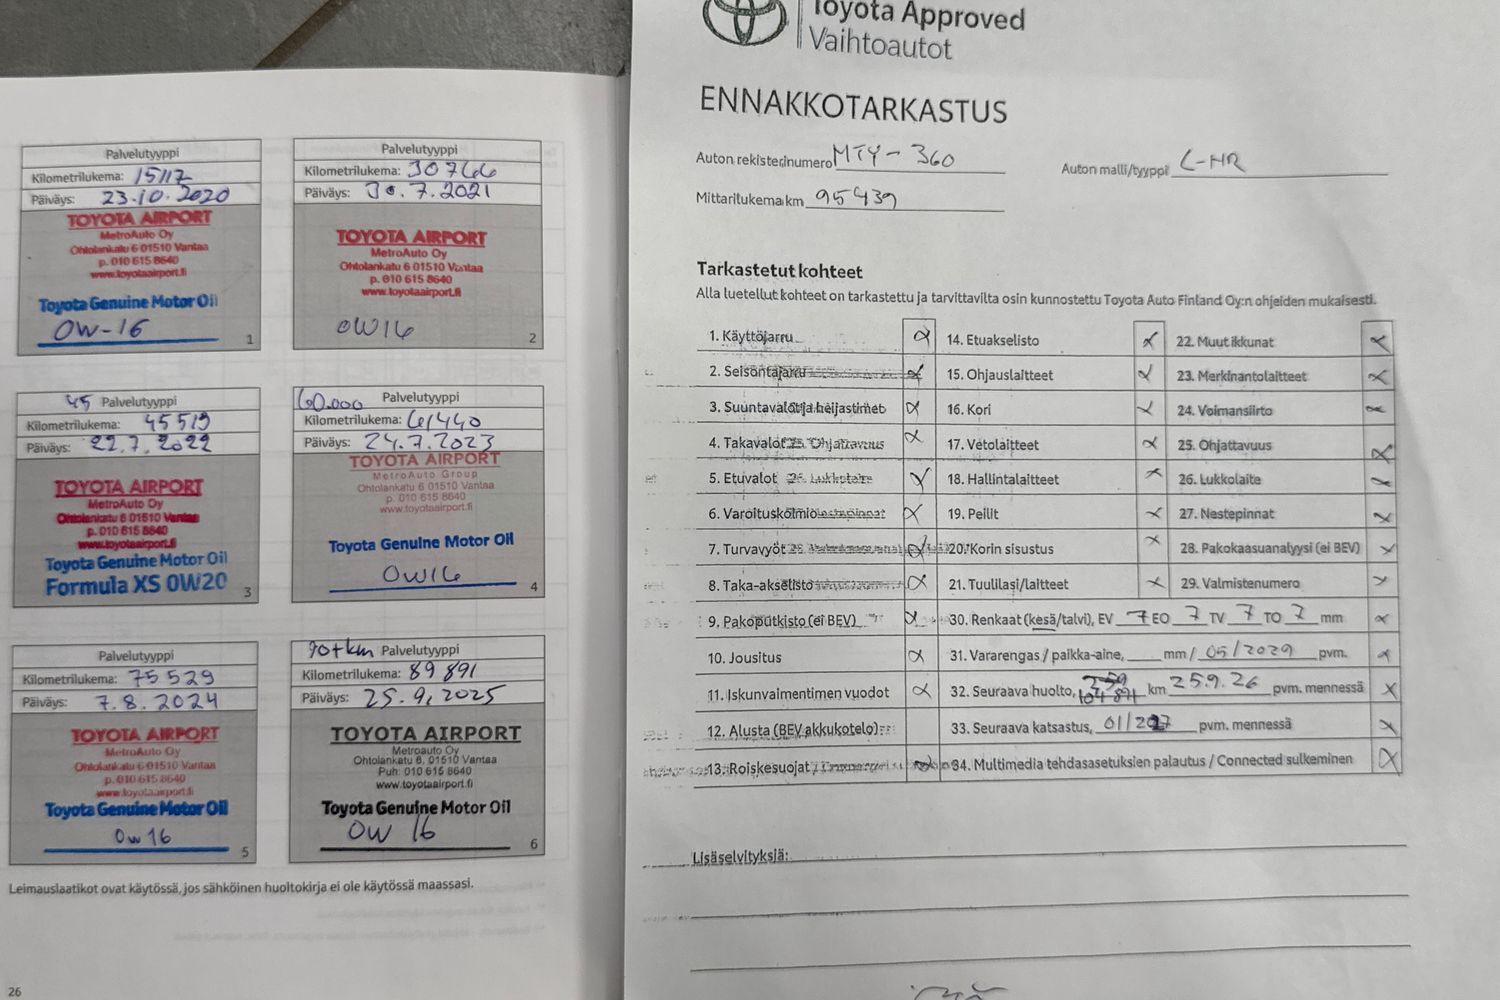 Palvelutyyppi
Kilometrilukema: 15117
Päiväys: 23.10.2020
TOYOTA AIRPORT
MetroAuto Oy
Ohtolankatu 6 01510 Vantaa
p. 010 615 8640
www.toyotaairport.fi
Toyota Genuine Motor Oil
0W-16
1
Palvelutyyppi
Kilometrilukema: 30766
Päiväys: 30.7.2021
TOYOTA AIRPORT
MetroAuto Oy
Ohtolankatu 6 01510 Vantaa
p. 010 615 8640
www.toyotaairport.fi
0W16
2
45 Palvelutyyppi
Kilometrilukema: 45519
Päiväys: 22.7.2022
TOYOTA AIRPORT
MetroAuto Oy
Ohtolankatu 6 01510 Vantaa
p. 010 615 8640
www.toyotaairport.fi
Toyota Genuine Motor Oil
Formula XS 0W20
3
60.000 Palvelutyyppi
Kilometrilukema: 61440
Päiväys: 24.7.2023
TOYOTA AIRPORT
MetroAuto Group
Ohtolankatu 6 01510 Vantaa
p. 010 615 8640
www.toyotaairport.fi
Toyota Genuine Motor Oil
0W16
4
Palvelutyyppi
Kilometrilukema: 75529
Päiväys: 7.8.2024
TOYOTA AIRPORT
MetroAuto Oy
Ohtolankatu 6 01510 Vantaa
p. 010 615 8640
www.toyotaairport.fi
Toyota Genuine Motor Oil
0W16
5
90tkm Palvelutyyppi
Kilometrilukema: 89891
Päiväys: 25.9.2025
TOYOTA AIRPORT
Metroauto Oy
Ohtolankatu 6, 01510 Vantaa
Puh: 010 615 8640
www.toyotaairport.fi
Toyota Genuine Motor Oil
0W 16
6
Leimauslaatikot ovat käytössä, jos sähköinen huoltokirja ei ole käytössä maassasi.
26
Toyota Approved
Vaihtoautot
ENNAKKOTARKASTUS
Auton rekisterinumero MTY-360
Auton malli/tyyppi C-HR
Mittarilukema km 95439
Tarkastetut kohteet
Alla luetellut kohteet on tarkastettu ja tarvittavilta osin kunnostettu Toyota Auto Finland Oy:n ohjeiden mukaisesti.
1. Käyttöjarru
2. Seisontajarru
3. Suuntavalot ja heijastimet
4. Takavalot
5. Etuvalot
6. Varoituskolmio
7. Turvavyöt
8. Taka-akselisto
9. Pakoputkisto (ei BEV)
10. Jousitus
11. Iskunvaimentimen vuodot
12. Alusta (BEV akkukotelo)
13. Roiskesuojat
14. Etuakselisto
15. Ohjauslaitteet
16. Kori
17. Vetolaitteet
18. Hallintalaitteet
19. Peilit
20. Korin sisustus
21. Tuulilasi/laitteet
22. Muut ikkunat
23. Merkinantolaitteet
24. Voimansiirto
25. Ohjattavuus
26. Lukkolaite
27. Nestepinnat
28. Pakokaasuanalyysi (ei BEV)
29. Valmistenumero
30. Renkaat (kesä/talvi), EV 7 EO 7 TV 7 TO 7 mm
31. Vararengas / paikka-aine, mm / 05/2029 pvm.
32. Seuraava huolto, 104 891 km 25.9.26 pvm. mennessä
33. Seuraava katsastus, 01/2027 pvm. mennessä
34. Multimedia tehdasasetuksien palautus / Connected sulkeminen
Lisäselvityksiä: